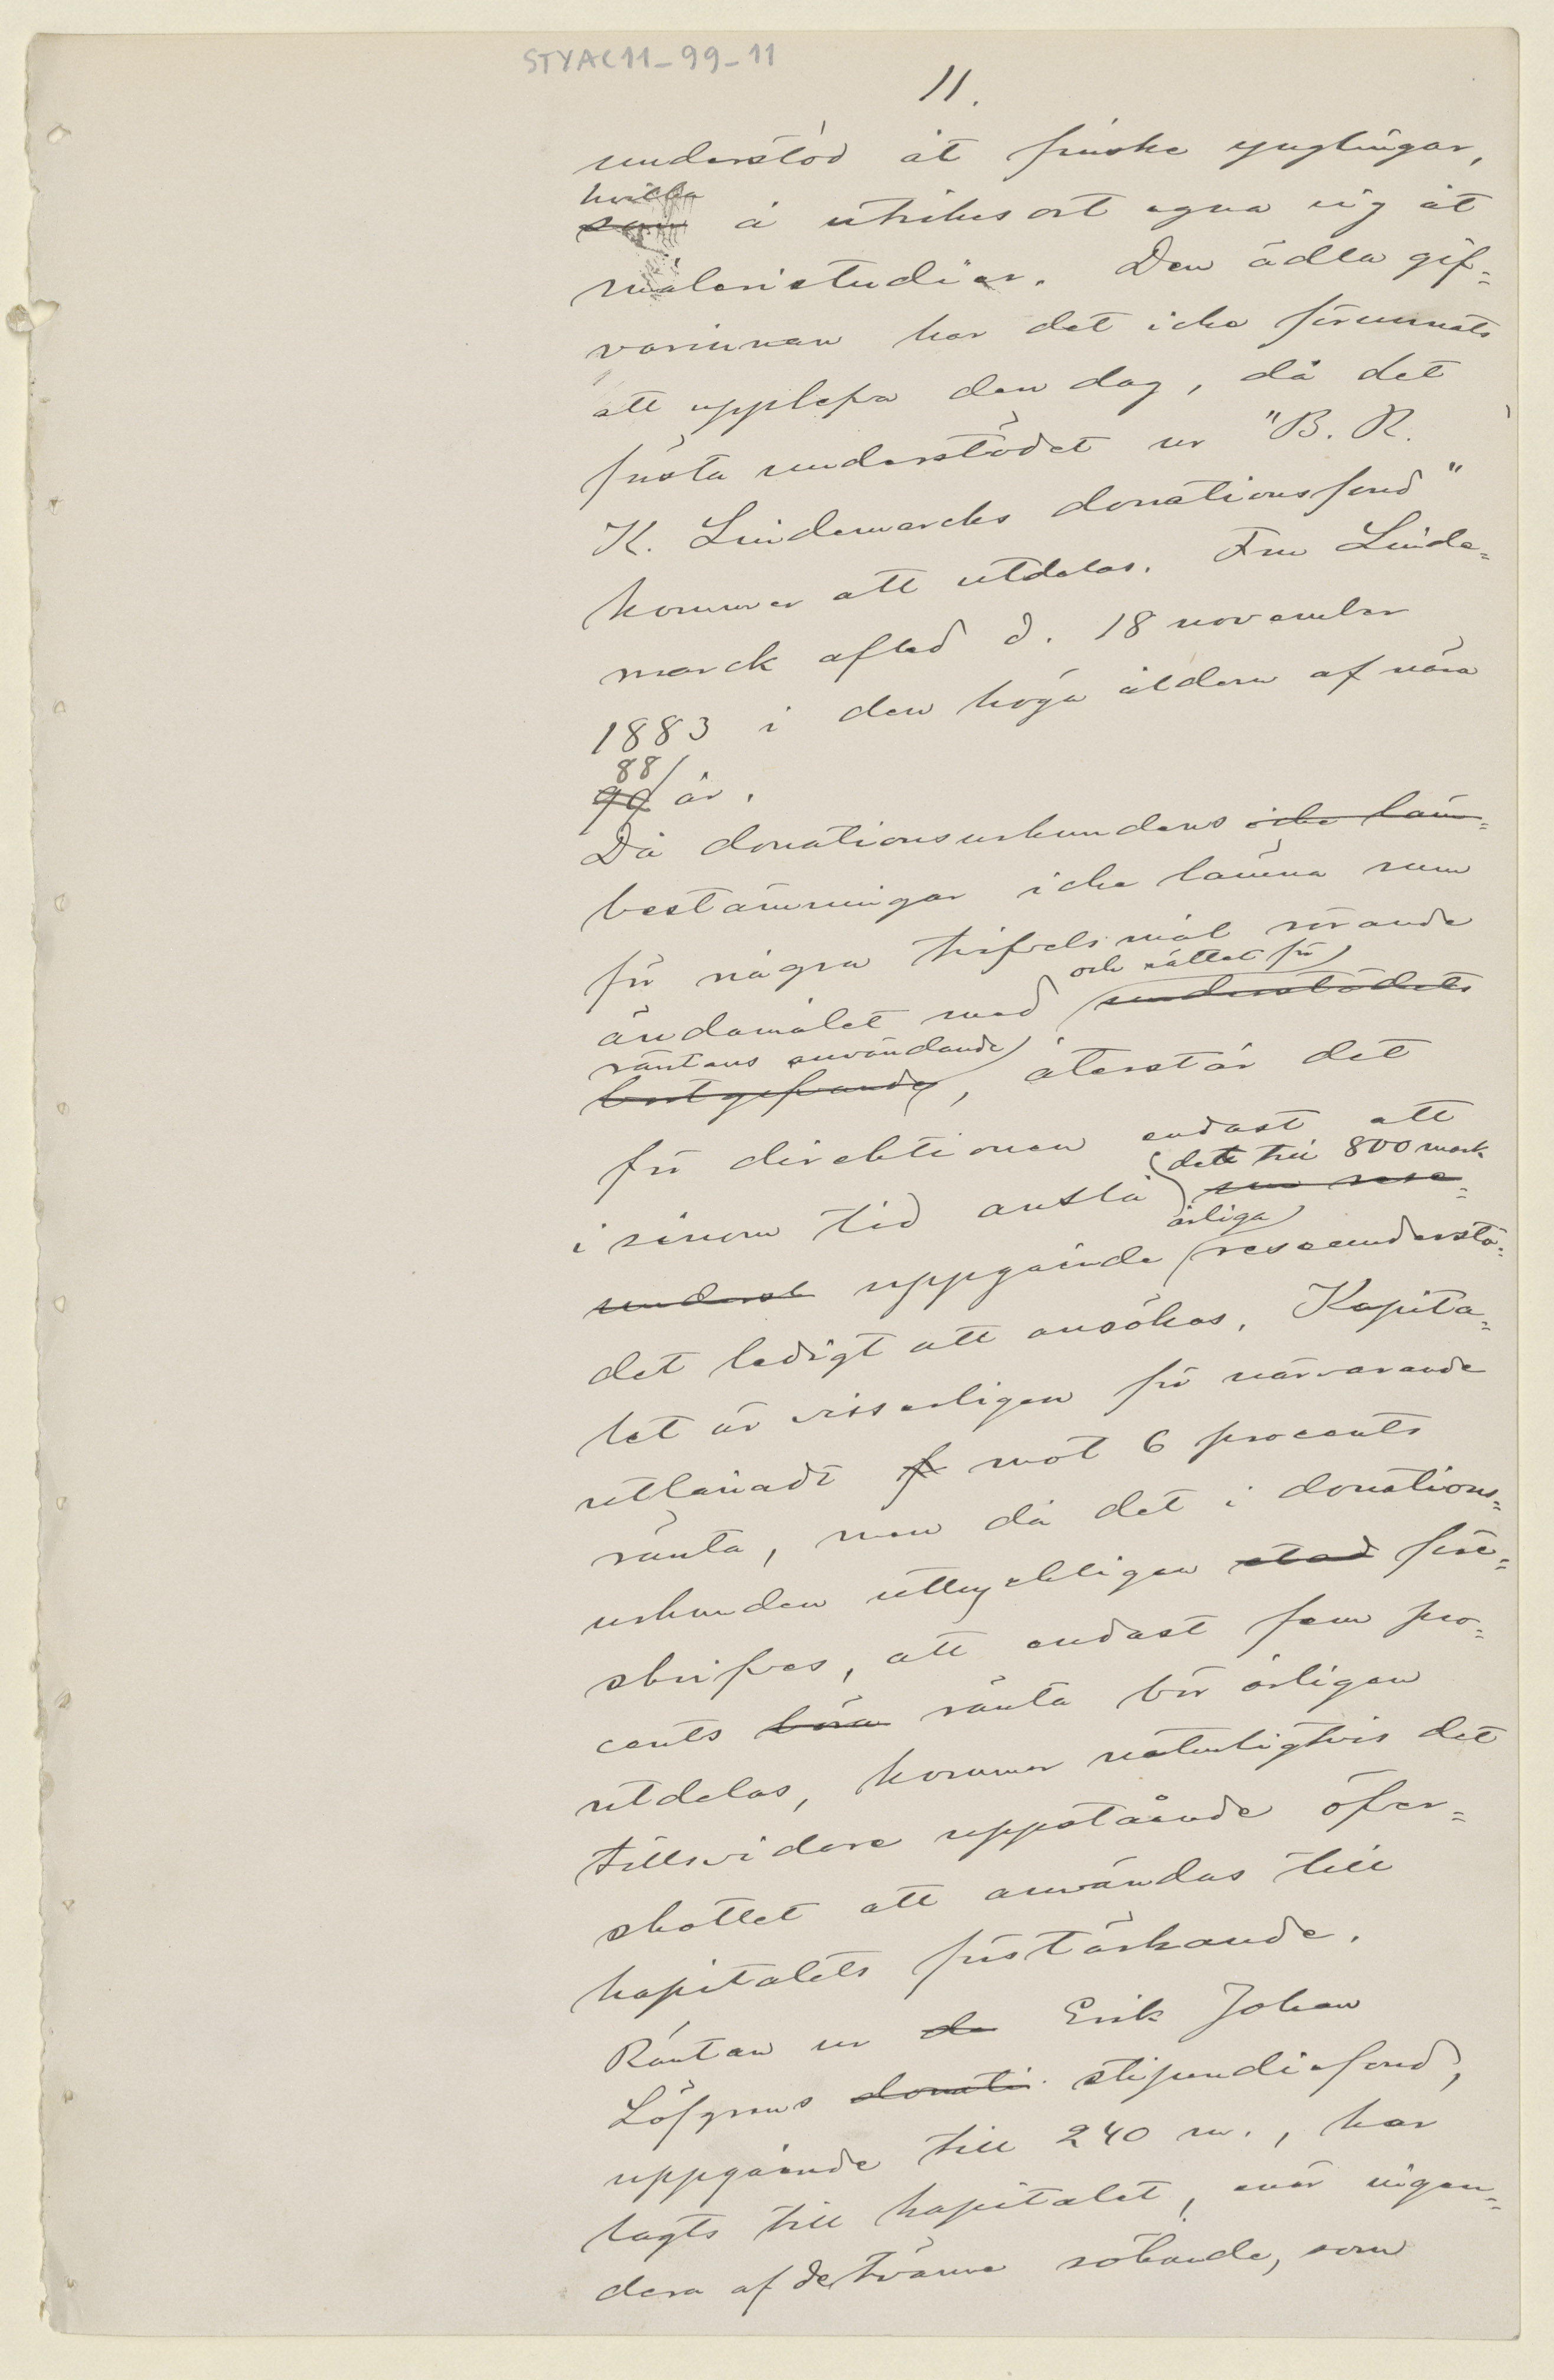 STYAC11_99_11
11.
understöd åt finske ynglingar,
hvilka
som å utrikes ort egna sig åt
målaristudier. Den ädla gif=
varinnan har det icke förunnats
att upplefva den dag, då det
första understödet ur "B. R.
K. Lindemarcks donationsfond"
kommer att utdelas. Fru Linde=
marck afled d. 18 november
1883 i den höga åldern af nära
88
90 år.
Då donationsurkundens icke läm=
bestämningar icke lämna rum
för några tvifvelsmål rörande
och sättet för
ändamålet med understödets
räntans användande
bortgifvande, återstår det
för direktionen endast att
i sinom tid anslå
det till 800 mark
som rese=
årliga
underst uppgående reseunderstö=
det ledigt att ansökas. Kapita=
let är visserligen för närvarande
utlånadt f mot 6 procents
ränta, men då det i donations=
urkunden uttryckligen stad före=
skrifves, att endast fem pro=
cents böra ränta bör årligen
utdelas, kommer naturligtvis det
tillsvidare uppstående öfver=
skottet att användas till
kapitalets förstärkande.
Räntan ur de Erik Johan
Löfgrens donati stipendiefond,
uppgående till 240 m., har
lagts till kapitalet, enär ingen=
dera af de tvänne sökande, som